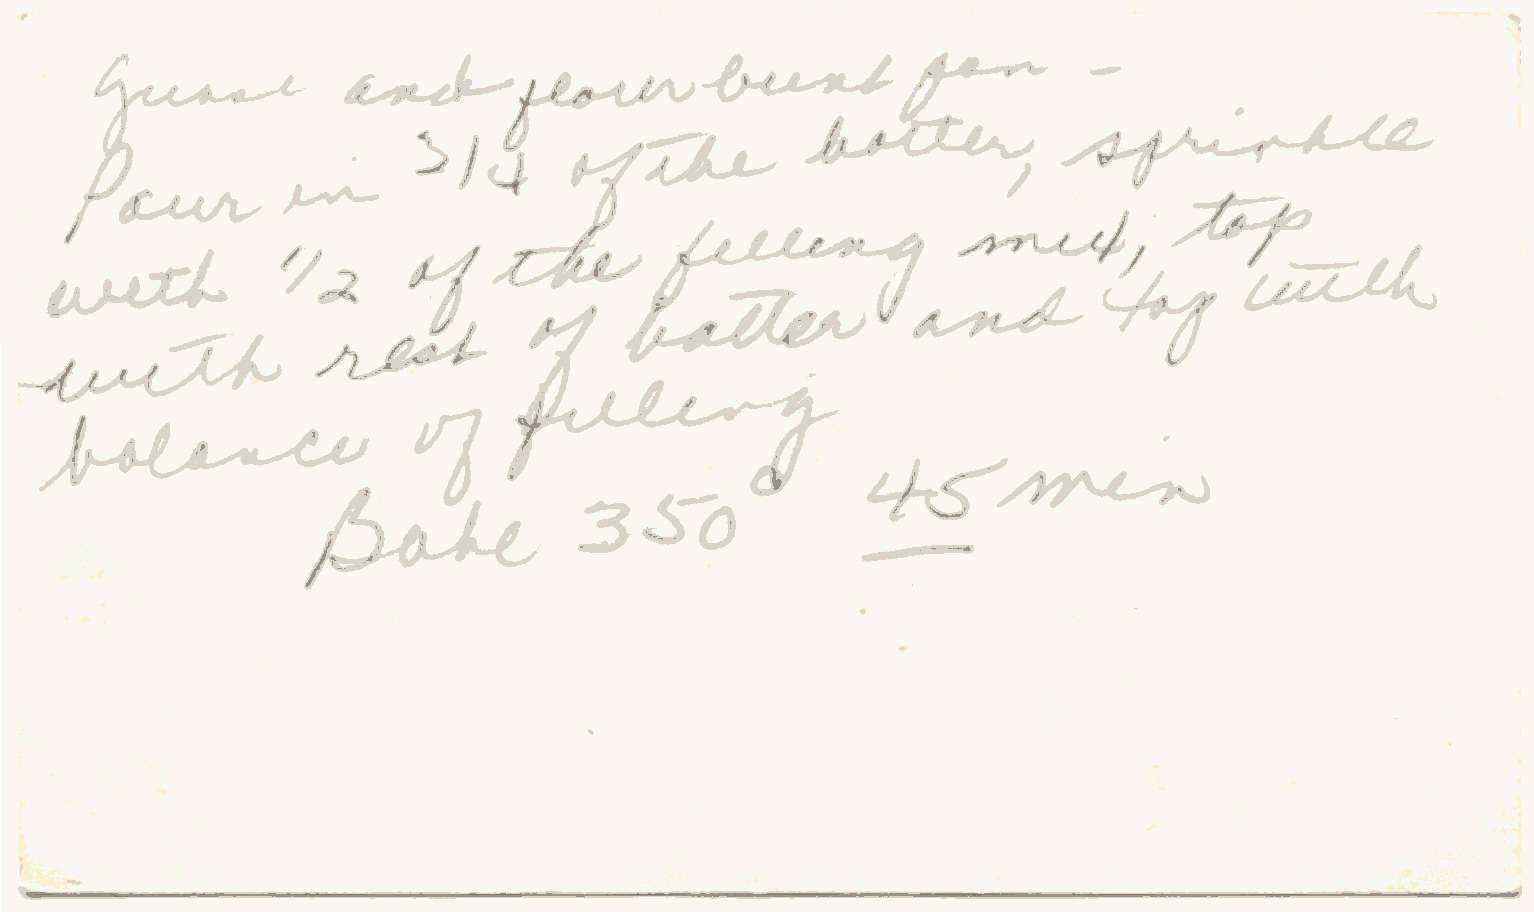 Grease and flour bunt pan -
Pour in 3/4 of the batter, sprinkle
with 1/2 of the filling mix, top
with rest of batter and top with
balance of filling
Bake 350° 45 min